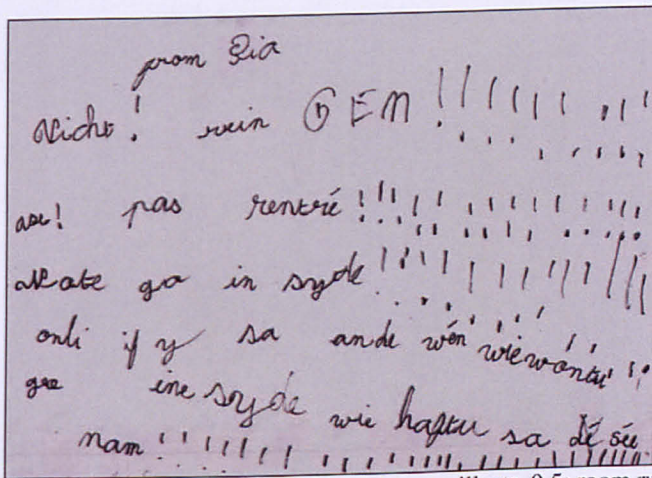 from Lia
Nicht! rein GEN!!!!!!!!!
pas rentré!!!!!!!!!!!!!!
go in syde!!!!!!!!!!!!
onli if y sa ande wén wiewontu!!!
ine syde wie haftu sa dé
nam!!!!!!!!!!!!!!!!!!!!!!